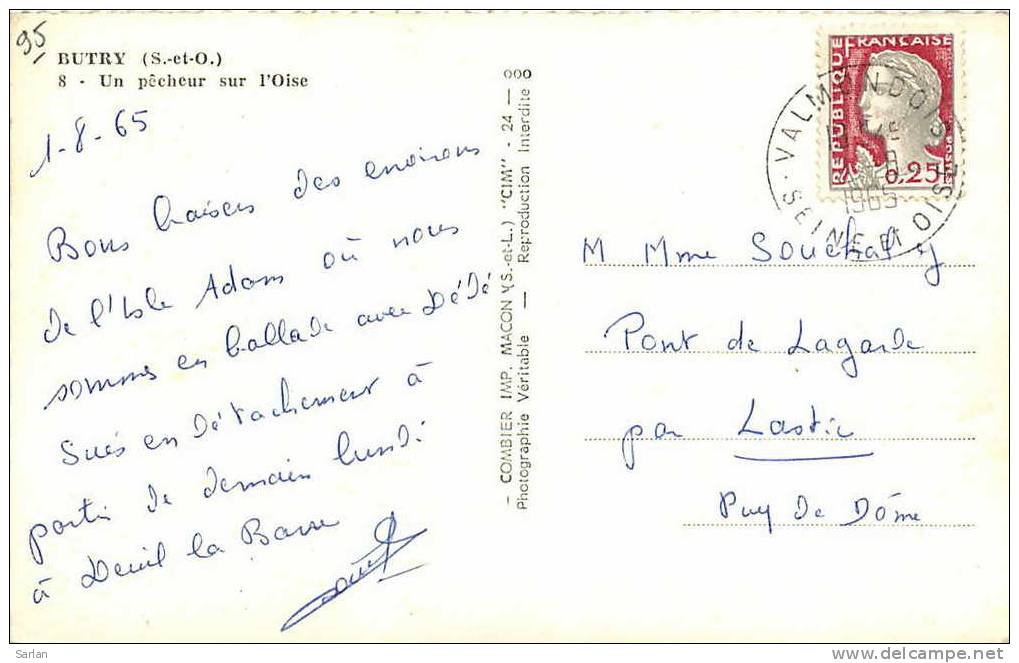 95
BUTRY (S.-et-O.)
8 - Un pêcheur sur l'Oise
1-8-65
Bons baisers des environs
de l'Isle Adam où nous
sommes en ballade avec Dédé
Suis en détachement à
partir de demain lundi
à Deuil la Barre
— COMBIER IMP. MACON (S.-et-L.) "CIM" - 24 — 000
Photographie Véritable — Reproduction Interdite
REPUBLIQUE FRANÇAISE
0,25
POSTES
VALMONDOIS
1965
SEINE ET OISE
M Mme Souchal
Pont de Lagarde
par Lastic
Puy de Dôme
Sarlan
www.delcampe.net